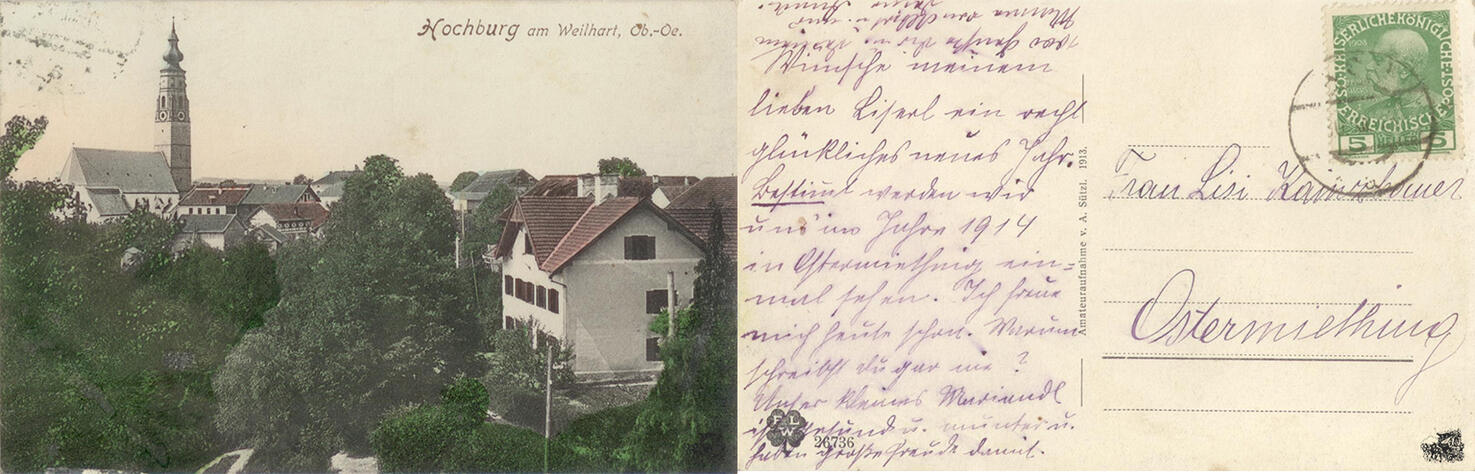 Hochburg am Weilhart, Ob.-Oe.
Wünsche meinem
lieben Liserl ein recht
glückliches neues Jahr.
Bestimt werden wir
uns im Jahre 1914
in Ostermiething ein=
mal sehen. Ich freue
mich heute schon. Warum
schreibst du gar nie?
Unser kleines Mariandl
ist gesund u. munter u.
haben große Freude damit.
Amateuraufnahme v. A. Sützl. 1913.
F L W
26736
KAISERLICHE KÖNIGLICHE
ÖSTERREICHISCHE
1908
5 5
Frau Lisi
Ostermiething